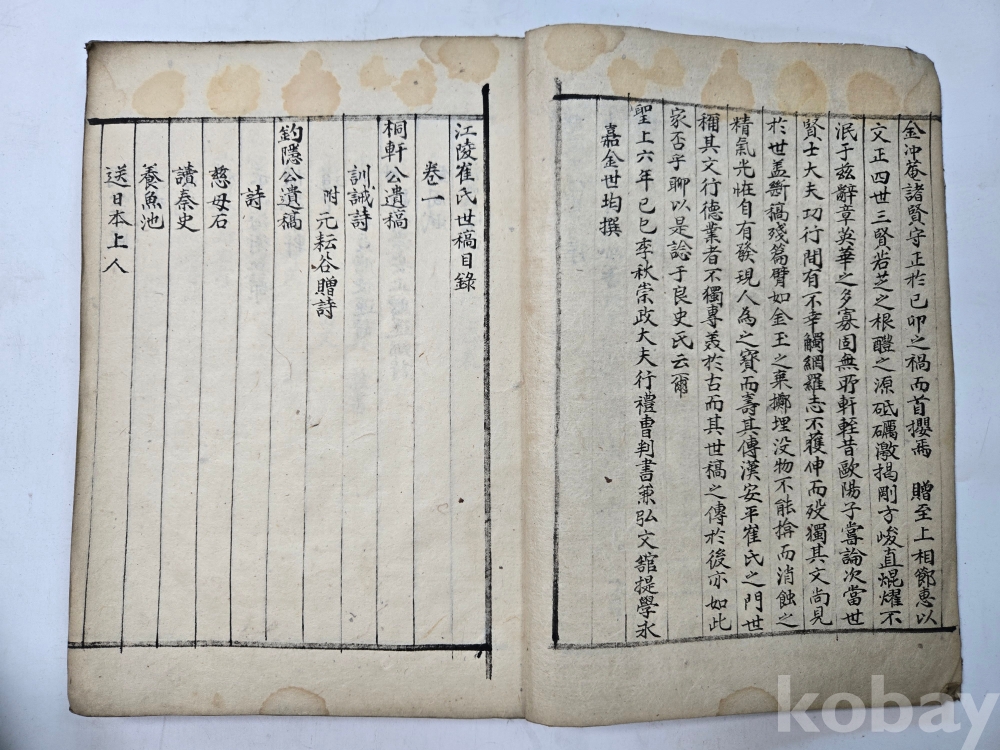 金冲菴諸賢守正於己卯之禍而首攖焉 贈至上相節惠以
文正四世三賢若芝之根醴之源砥礪激揭剛方峻直焜燿不
泯于玆辭章英華之多寡固無所軒輊昔歐陽子嘗論次當世
賢士大夫功行間有不幸觸網羅志不獲伸而歿獨其文尚見
於世盖斷稿殘篇譬如金玉之棄擲埋没物不能揜而消蝕之
精氣光恠自有發現人為之寶而壽其傳漢安平崔氏之門世
稱其文行德業者不獨專羙於古而其世稿之傳於後亦如此
家否乎聊以是諗于良史氏云爾
聖上六年己巳季秋崇政大夫行禮曹判書兼弘文舘提學永
嘉金世均撰
江陵崔氏世稿目錄
卷一
桐軒公遺稿
訓誡詩
附 元耘谷贈詩
釣隱公遺稿
詩
慈母石
讀秦史
養魚池
送日本上人
kobay